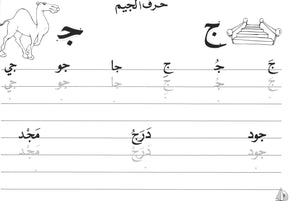 حرف الجيم
ج جـ
جَ جُ جِ جا جو جي
جَ جُ جِ جا جو جي
جود دَرَجُ مَجْد
جود دَرَجُ مَجْد